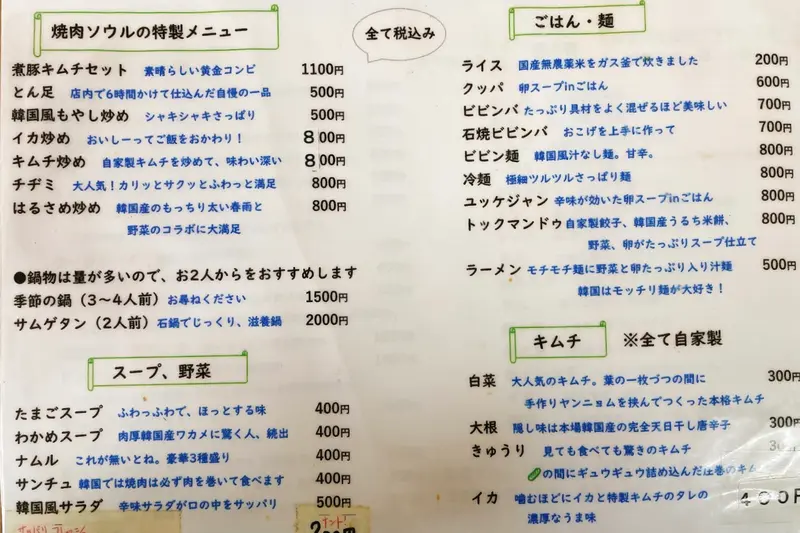 焼肉ソウルの特製メニュー
全て税込み
煮豚キムチセット 素晴らしい黄金コンビ 1100円
とん足 店内で6時間かけて仕込んだ自慢の一品 500円
韓国風もやし炒め シャキシャキさっぱり 500円
イカ炒め おいしーってご飯をおかわり! 800円
キムチ炒め 自家製キムチを炒めて、味わい深い 800円
チヂミ 大人気!カリッとサクッとふわっと満足 800円
はるさめ炒め 韓国産のもっちり太い春雨と 800円
野菜のコラボに大満足
●鍋物は量が多いので、お2人からをおすすめします
季節の鍋(3〜4人前) お尋ねください 1500円
サムゲタン(2人前) 石鍋でじっくり、滋養鍋 2000円
スープ、野菜
たまごスープ ふわっふわで、ほっとする味 400円
わかめスープ 肉厚韓国産ワカメに驚く人、続出 400円
ナムル これが無いとね。豪華3種盛り 400円
サンチュ 韓国では焼肉は必ず肉を巻いて食べます 400円
韓国風サラダ 辛味サラダが口の中をサッパリ 500円
ごはん・麺
ライス 国産無農薬米をガス釜で炊きました 200円
クッパ 卵スープinごはん 600円
ビビンバ たっぷり具材をよく混ぜるほど美味しい 700円
石焼ビビンバ おこげを上手に作って 700円
ビビン麺 韓国風汁なし麺。甘辛。 800円
冷麺 極細ツルツルさっぱり麺 800円
ユッケジャン 辛味が効いた卵スープinごはん 800円
トックマンドゥ 自家製餃子、韓国産うるち米餅、 800円
野菜、卵がたっぷりスープ仕立て
ラーメン モチモチ麺に野菜と卵たっぷり入り汁麺 500円
韓国はモッチリ麺が大好き!
キムチ ※全て自家製
白菜 大人気のキムチ。葉の一枚づつの間に 300円
手作りヤンニョムを挟んでつくった本格キムチ
大根 隠し味は本場韓国産の完全天日干し唐辛子 300円
きゅうり 見ても食べても驚きのキムチ
の間にギュウギュウ詰め込んだ圧巻のキム
イカ 噛むほどにイカと特製キムチのタレの 400円
濃厚なうま味